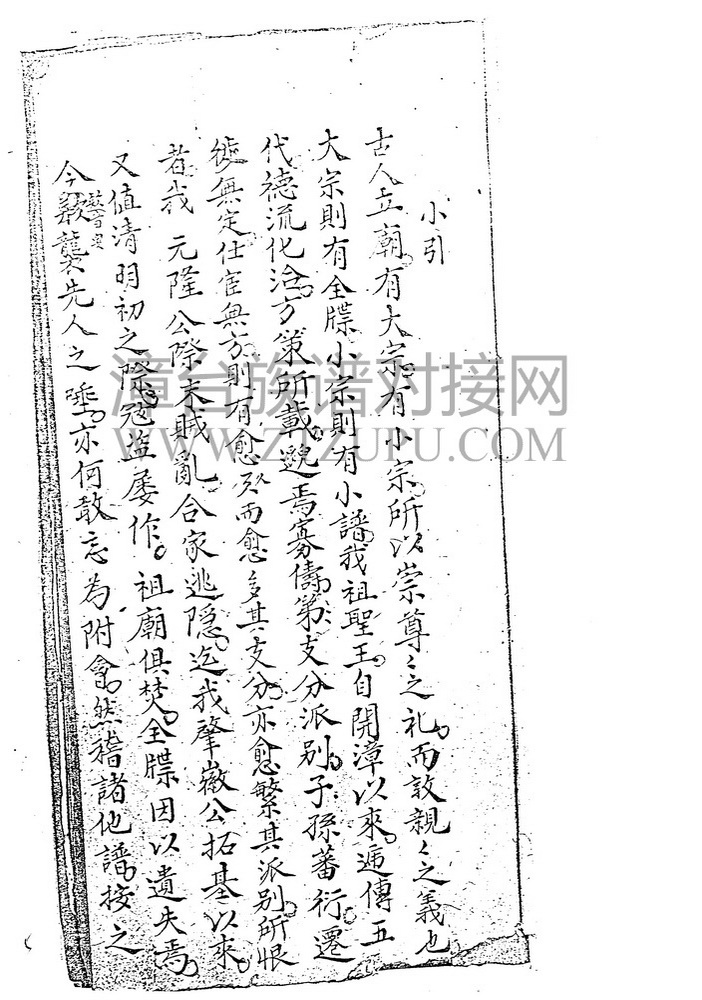 小引
古人立廟有大宗有小宗所以崇尊々之礼而敦親々之義也
大宗則有全牒小宗則有小譜我祖聖王自開漳以來遞傳五
代德流化洽方策所載邈焉寡儔第支分派別子孫蕃衍遷
徙無定仕宦無方則有愈久而愈多其支分亦愈繁其派別所恨
者我 元隆公際末賊亂合家逃隱迄我肇嶶公拓基以來
又值清明初之際寇盜屡作祖廟俱焚全牒因以遺失焉
今 襲先人之 亦何敢忘為附會然稽諸他譜按之
漳台族谱对接网
WWW.ZTZUPU.COM